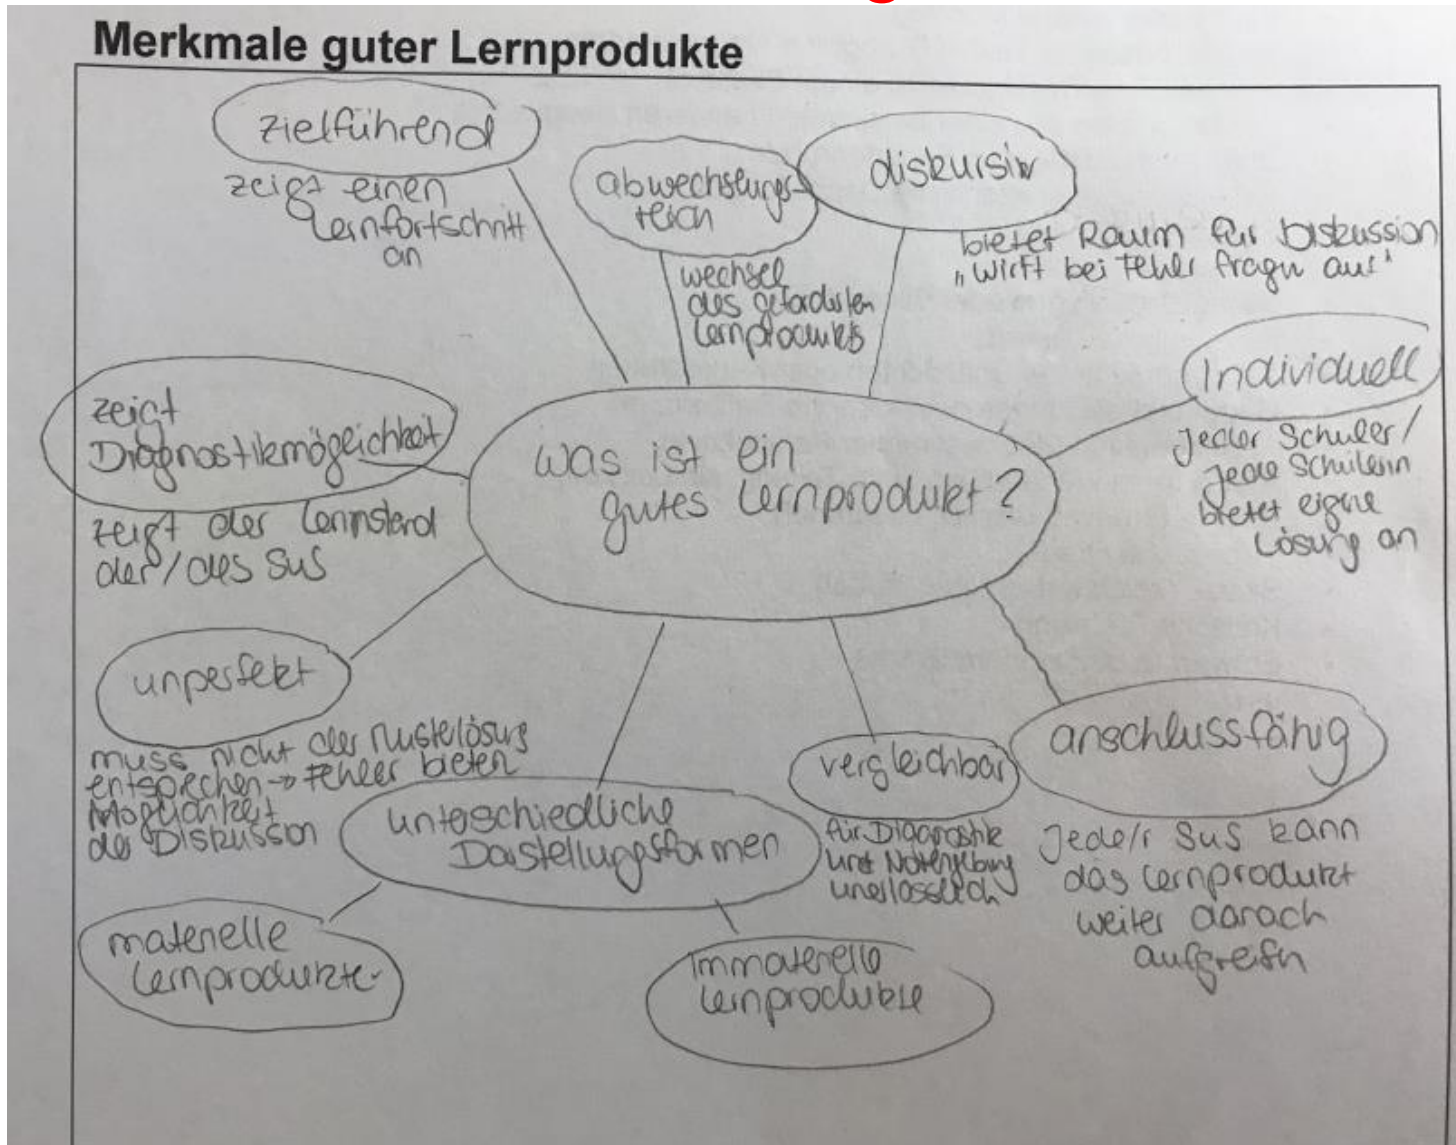 Merkmale guter Lernprodukte
zielführend
zeigt einen
Lernfortschritt
an
abwechslungs-
reich
wechsel
des geforderten
Lernprodukts
diskursiv
bietet Raum für Diskussion
„wirft bei Fehler Fragen auf"
Individuell
Jeder Schüler/
Jede Schülerin
bietet eigne
Lösung an
zeigt
Diagnostikmöglichkeit
zeigt der Lernnstand
der/des SuS
was ist ein
gutes Lernprodukt?
unperfekt
muss nicht der Musterlösung
entsprechen → Fehler bieten
Möglichkeit
der Diskussion
unterschiedliche
Darstellungsformen
materielle
Lernprodukte
Immaterielle
Lernprodukte
vergleichbar
für Diagnostik
und Notengebung
unerlässlich
anschlussfähig
Jede/r SuS kann
das Lernprodukt
weiter danach
aufgreifen